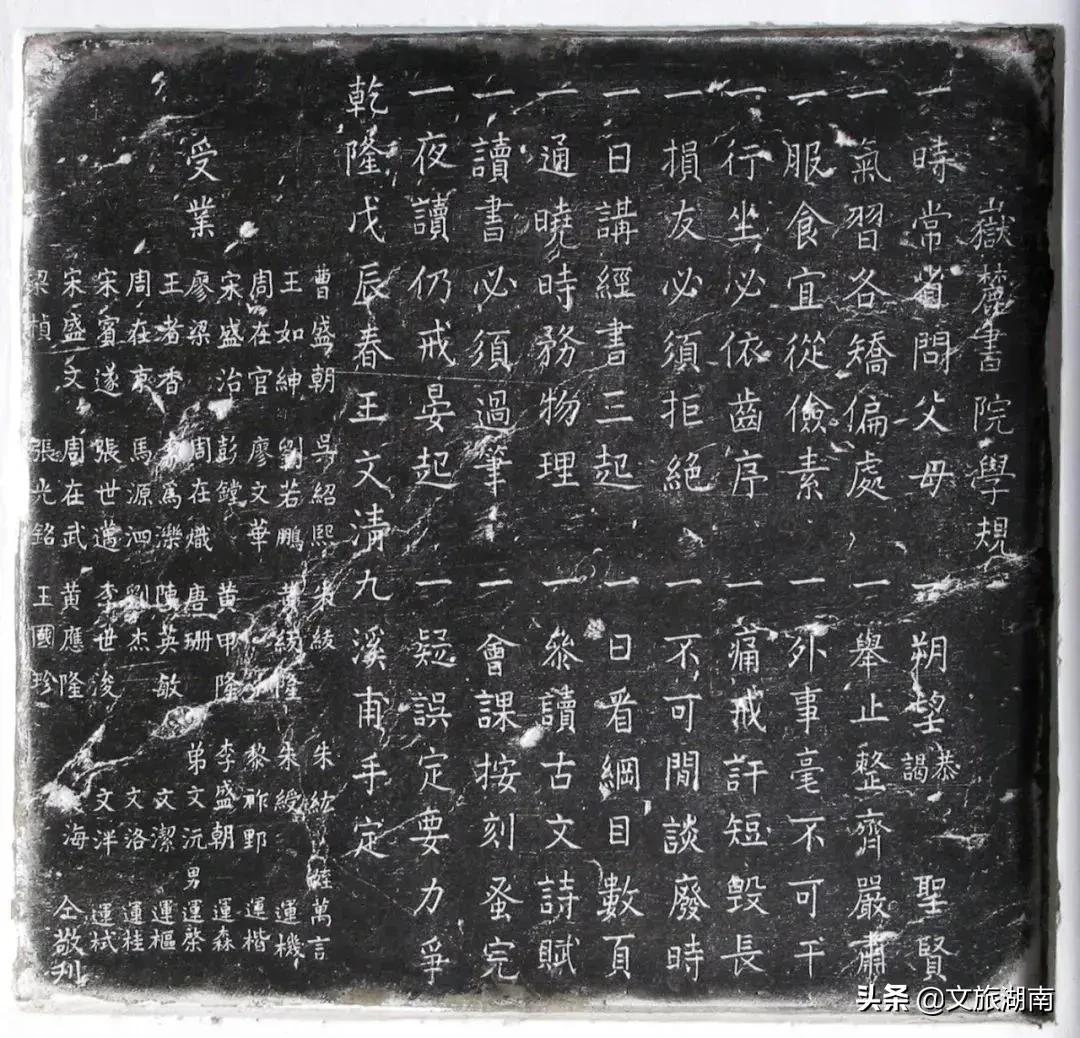 嶽麓書院學規
一時常省問父母 一朔望恭謁聖賢
一氣習各矯偏處 一舉止整齊嚴肅
一服食宜從儉素 一外事毫不可干
一行坐必依齒序 一痛戒訐短毀長
一損友必須拒絕 一不可閒談廢時
一日講經書三起 一日看綱目數頁
一通曉時務物理 一參讀古文詩賦
一讀書必須過筆 一會課按刻蚤完
一夜讀仍戒晏起 一疑誤定要力爭
乾隆戊辰春王文清九溪甫手定
受業
曹盛朝 吳紹熙 朱綾 朱紘 萬言
王如紳 劉若鵬 黃綉隆 朱綬 運機
周在官 廖文華 黎祚野 運楷
宋盛治 彭鏜 黃甲隆 李盛朝 運森
廖梁 周在熾 唐珊 弟文沅 男運棨
王者香 李為濼 陳英敏 文潔 運樞
周在 馬源泗 劉杰 文洛 運桂
宋賓遂 張世邁 李世浚 文洋 運栻
宋盛文 周在武 黃應隆 文海 仝敬刊
梁楨 張光銘 王國珍
头条 @文旅湖南